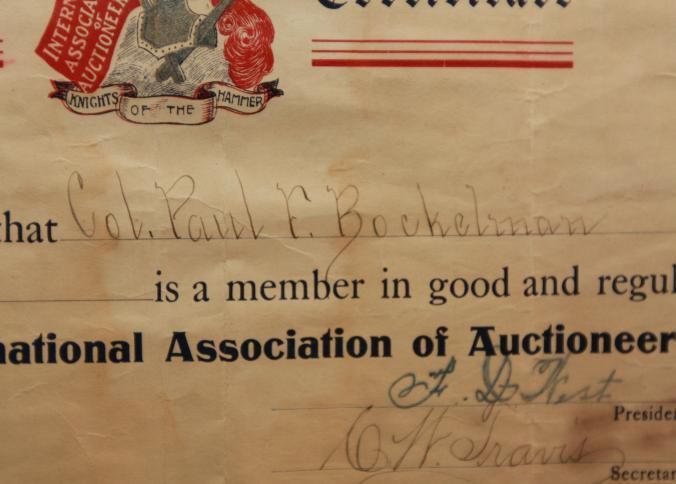 INTERN
ASSOCIA
OF
AUCTIONEER
KNIGHTS OF THE HAMMER
that Col. Paul F. Bockelman
is a member in good and regul
national Association of Auctioneer
F. D. West
Presiden
C. W. Travis
Secretar